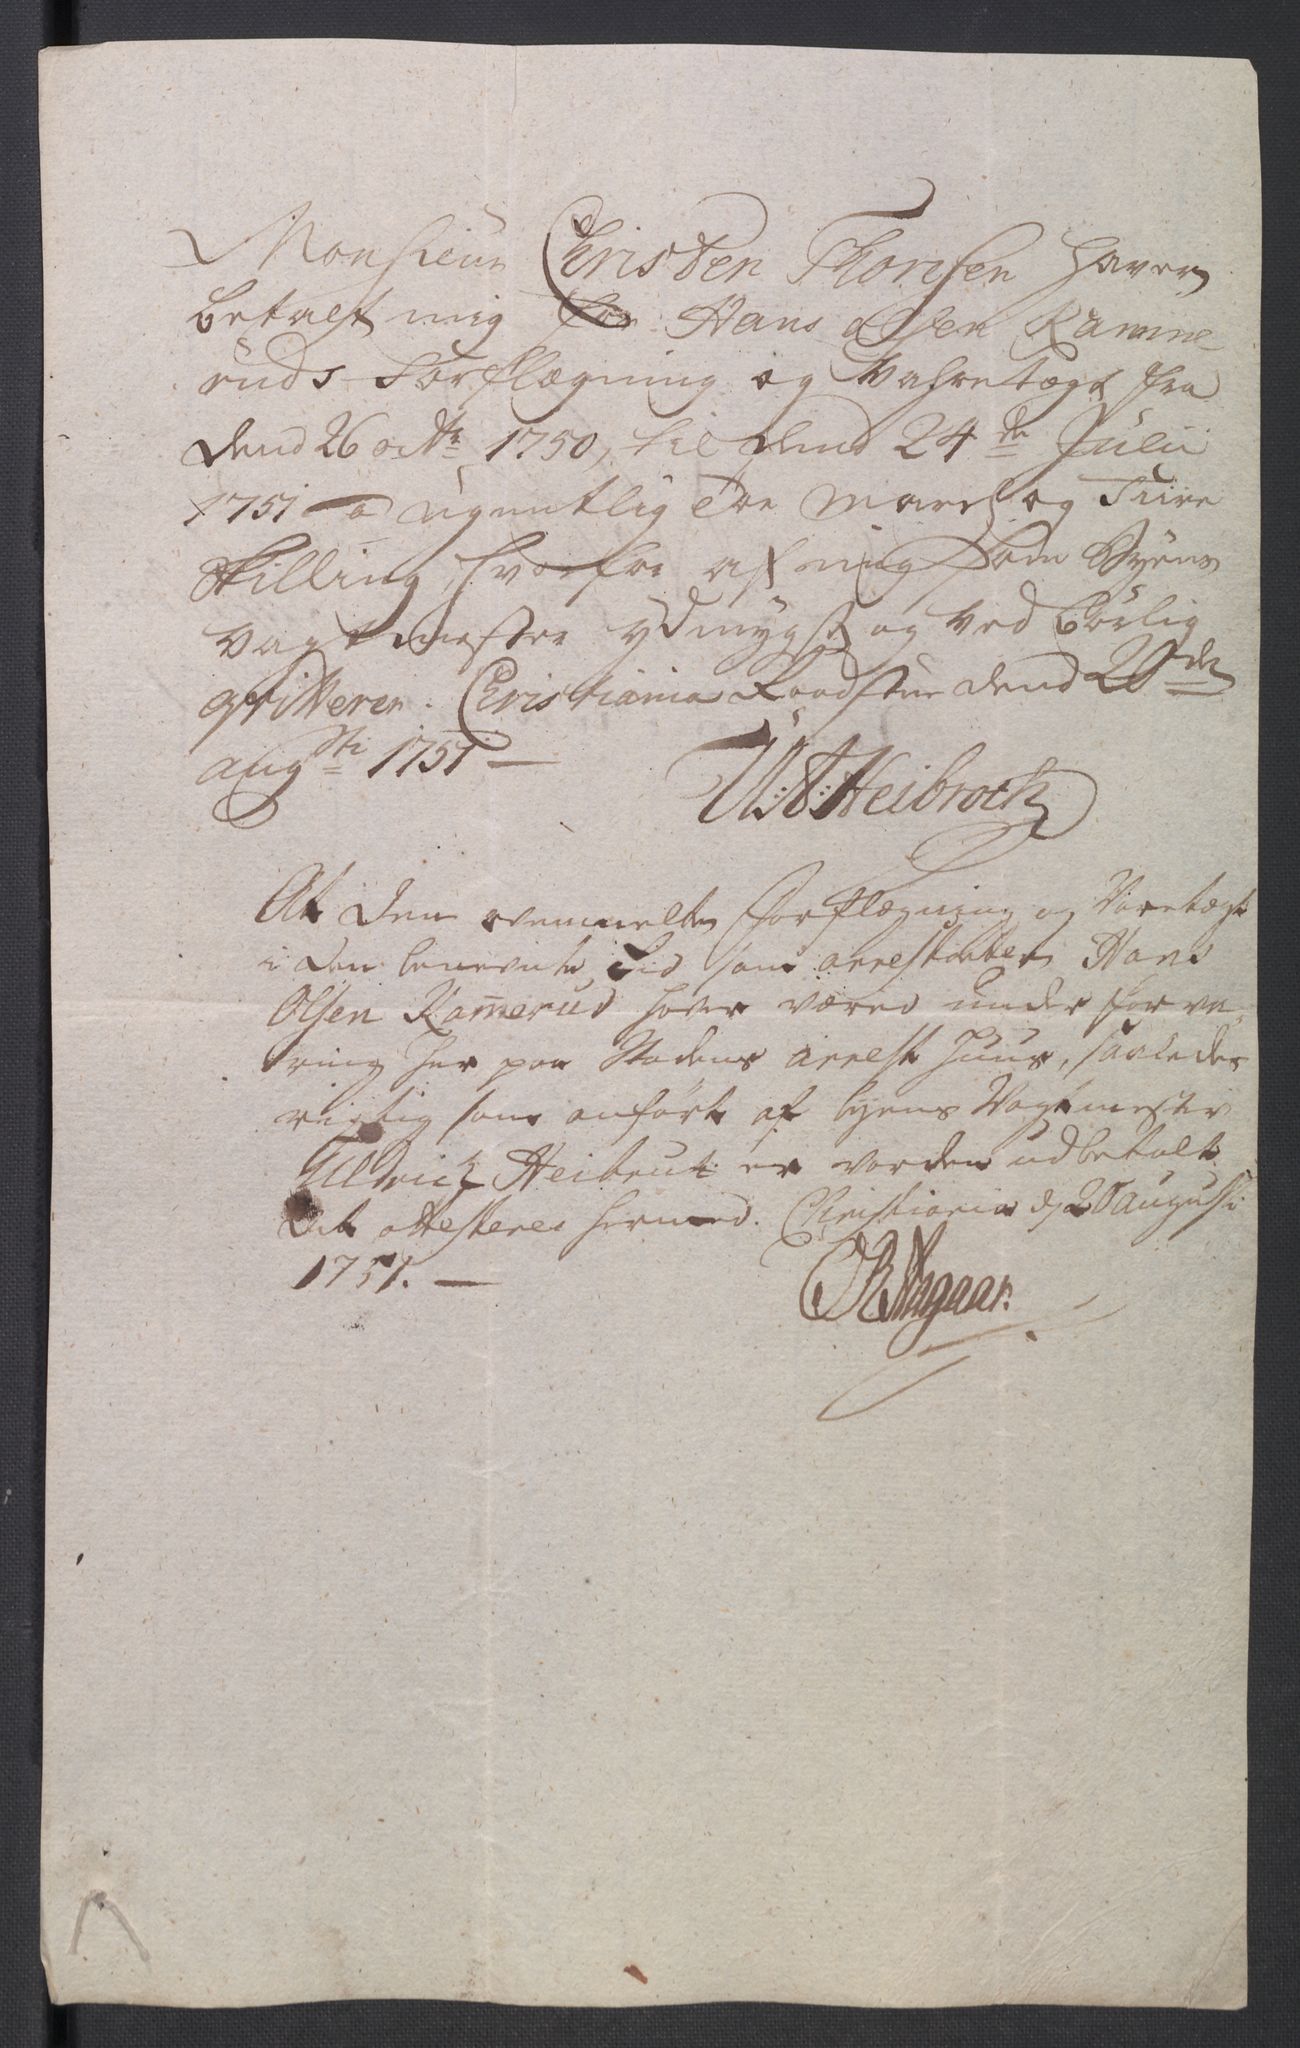 Monsieur Christen Thoresen haver
betalt mig for Hans Olsen Ramme-
ruds Forflægning og Vahretægt fra
dend 26 octbr 1750, til dend 24de Julii
1751 a ugentlig toe Marck og Fiire
Skilling, hvorfor af mig som Byens
Vagtmester ydmygst og ved Børlig
qvitterer. Christiania Raadstue dend 20de
augsti 1751 —
U: A: Heibroch
At den ovenmelte Forflægning og Varetægt
i den benevnte Tid som arrestanten Hans
Olsen Ramerud haver været under forva-
ring her paa Stadens arrest Huus, saaledes
rigtig som anført af byens Vagtmester
Uldrich Heibrut er vorden udbetalt
det attesteres hermed. Christiania d 20 augusti
1751. —